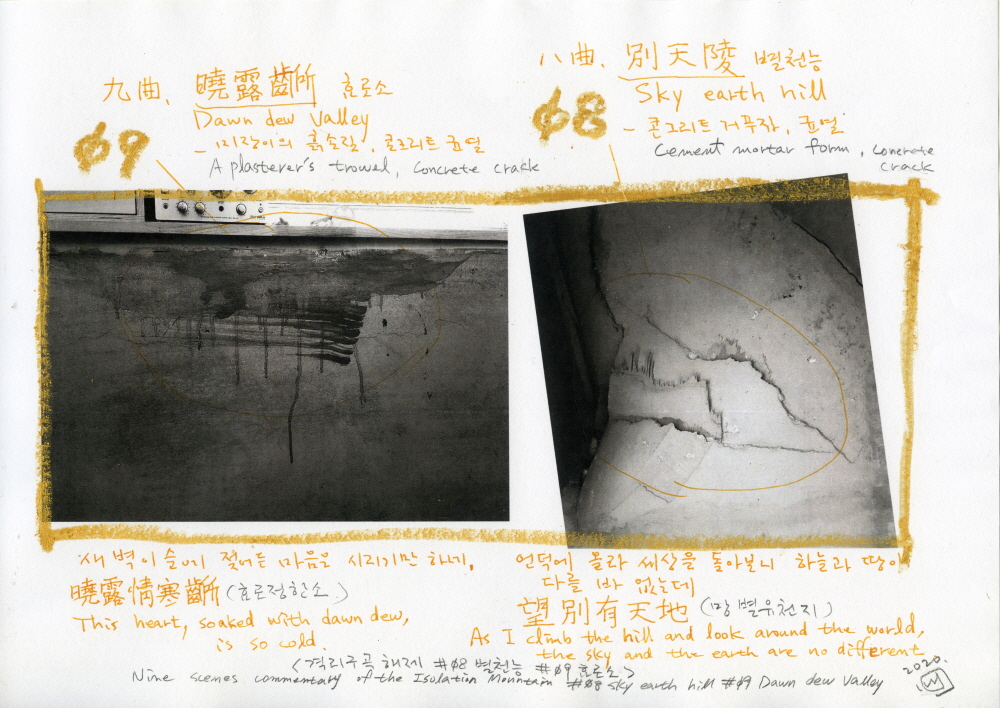 九曲、曉露齭 효로소
Dawn dew Valley
#09
- 미장이의 흙손질, 콘크리트 균열
A plasterer's trowel, concrete crack
八曲、別天陵 별천능
Sky earth hill
#08
- 콘크리트 거푸집, 균열
Cement mortar form, concrete
crack
새벽이슬에 젖어든 마음은 시리기만 하네.
曉露情寒齭 (효로정한소)
This heart, soaked with dawn dew,
is so cold.
언덕에 올라 세상을 돌아보니 하늘과 땅이
다를 바 없는데
望別有天地 (망별유천지)
As I climb the hill and look around the world,
the sky and the earth are no different
<격리구곡 해제 #08 별천능 #09 효로소>
Nine scenes commentary of the Isolation Mountain #08 Sky earth hill #09 Dawn dew Valley
2020.